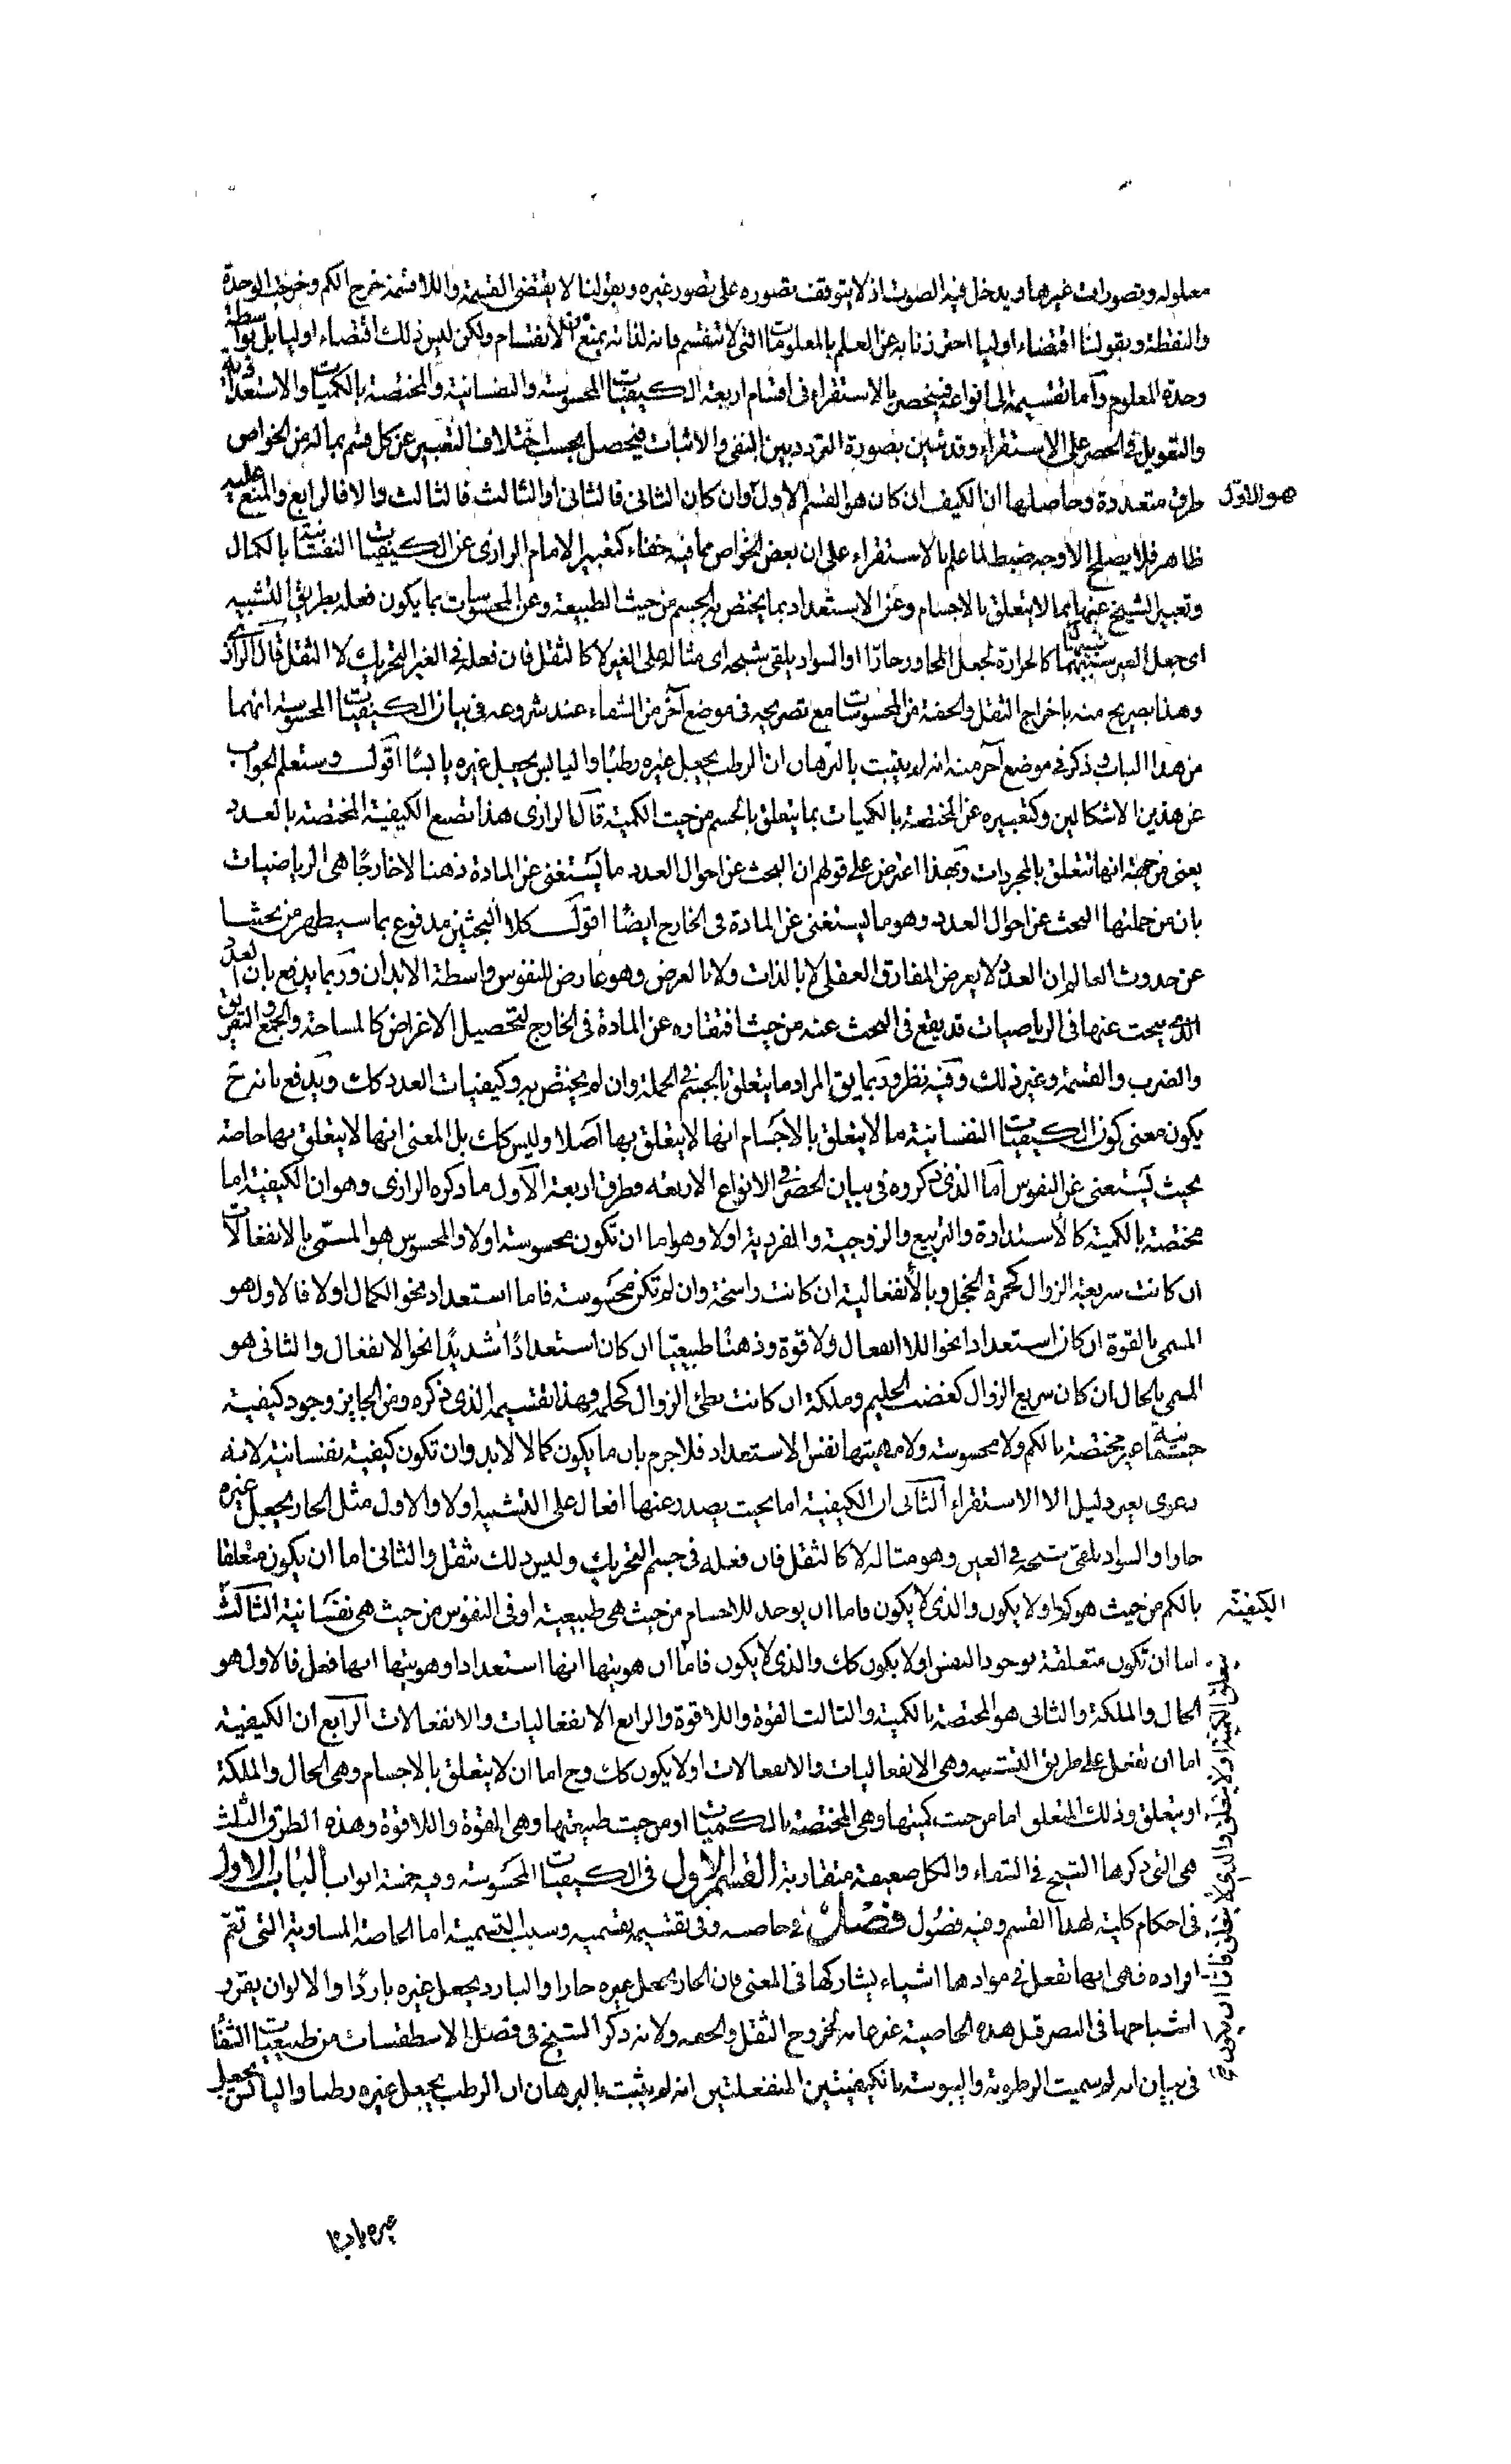 معلوله وتصورات غيرها ويدخل فيه الصوت اذ لا يتوقف تصوره على تصور غيره وبقولنا لا يقتضى القسمة واللاقسمة خرج الكم وخرجت الوحدة
والنقطة وبقولنا اقتضاء اوليا احترزنا به عن العلم بالمعلومات التى لا تنقسم فانه لذاته يمنع من الانقسام ولكن ليس ذلك اقتضاء اوليا بل بواسطة
وحدة المعلوم وأما تقسيمه الى انواعه فينحصر بالاستقراء فى اقسام اربعة الكيفيات المحسوسة والنفسانية والمختصة بالكميات والاستعدادية
والتعويل فى الحصر على الاستقراء وقد تبين بصورة التردد بين النفى والاثبات فيحصل بحسب اختلاف التعبير عن كل قسم بماله من الخواص
طرق متعددة وحاصلها ان الكيف ان كان هو القسم الاول وان كان الثانى فالثانى او الثالث فالثالث والا فالرابع والمنع عليه
هو الاول
ظاهر فلا يصلح الا وجه ضبط لما علم بالاستقراء على ان بعض الخواص مما فيه خفاء كتعبير الامام الرازى عن الكيفيات النفسانية بالكمال
وتعبير الشيخ عنها بما لا يتعلق بالاجسام وعن الاستعداد بما يختص بالجسم من حيث الطبيعة وعن المحسوسات بما يكون فعله بطريق التشبيه
اى جعل الغير شبيها كالحرارة تجعل المجاور حارا او السواد يلقى شبحه اى مثاله على الغير لا كالثقل فان فعله فى الغير التحريك لا الثقل قال الرازى
وهذا تصريح منه باخراج الثقل والخفة من المحسوسات مع تصريحه فى موضع آخر من الشفاء عند شروعه فى بيان الكيفيات المحسوسة انهما
من هذا الباب وذكر فى موضع آخر منه انه لم يثبت بالبرهان ان الرطب يجعل غيره رطبا واليابس يجعل غيره يابسا اقول وستعلم الجواب
عن هذين الاشكالين وكتعبيره عن المختصة بالكميات بما يتعلق بالجسم من حيث الكمية قال الرازى هذا تضيع الكيفية المختصة بالعدد
يعنى من جهة انها تتعلق بالمجردات وبهذا اعترض على قولهم ان البحث عن احوال العدد ما يستغنى عن المادة ذهنا لا خارجا هى الرياضيات
بان من جملتها البحث عن احوال العدد وهو ما يستغنى عن المادة فى الخارج ايضا اقول كلا البحثين مدفوع بما سيظهر من بحثنا
عن حدوث العالم ان العدد لا يعرض المفارق العقلى لا بالذات ولا بالعرض وهو عارض للنفوس بواسطة الابدان وربما يدفع بان العدد
الذى يبحث عنها فى الرياضيات قد يقع فى البحث عنه من حيث افتقاره عن المادة فى الخارج لتحصيل الاغراض كالمساحة والجمع والتفريق
والضرب والقسمة وغير ذلك وفيه نظر وربما يق المراد ما يتعلق بالجسم فى الجملة وان لم يختص به وكيفيات العدد كك ويدفع بانه ح
يكون معنى كون الكيفيات النفسانية ما لا يتعلق بالاجسام انها لا يتعلق بها اصلا وليس كك بل المعنى انها لا يتعلق بها خاصة
بحيث يستغنى عن النفوس أما الذى ذكروه فى بيان الحصر فى الانواع الاربعه فطرق اربعة الاول ما ذكره الرازى وهو ان الكيفية اما
مختصة بالكمية كالاستدارة والتربيع والزوجية والفردية اولا وهو اما ان تكون محسوسة اولا والمحسوس هو المسمى بالانفعالات
ان كانت سريعة الزوال كحمرة الخجل وبالانفعالية ان كانت راسخة وان لم تكن محسوسة فاما استعداد نحو الكمال اولا فالاول هو
المسمى بالقوة ان كان استعدادا نحو اللاانفعال ولا قوة وذهنا طبيعيا ان كان استعدادا شديدا نحو الانفعال والثانى هو
المسمى بالحال ان كان سريع الزوال كغضب الحليم وملكة ان كانت بطئ الزوال كحلمه فهذا تقسيم الذى ذكره ومن الجايز وجود كيفية
جسمانية غير مختصة بالكم ولا محسوسة ولا مهيتها نفس الاستعداد فلا جزم بان ما يكون كمالا لابد وان تكون كيفية نفسانية لانه
دعوى بغير دليل الا الاستقراء الثانى ان الكيفية اما بحيث يصدر عنها افعال على التشبيه اولا والاول مثل الحار يجعل غيره
حارا والسواد يلقى شبحه فى العين وهو مثاله لا كالثقل فان فعله فى جسم التحريك وليس ذلك بثقل والثانى اما ان يكون متعلقا
بالكم من حيث هو كم اولا يكون والذى لا يكون فاما ان يوجد للاجسام من حيث هى طبيعية او فى النفوس من حيث هى نفسانية الثالث
الكيفية
اما ان تكون متعلقة بوجود النفس اولا يكون كك والذى لا يكون فاما ان هويتها انها استعداد او هويتها انها فعل فالاول هو
الحال والملكة والثانى هو المختصة بالكمية والثالث القوة واللاقوة والرابع الانفعاليات والانفعالات الرابع ان الكيفية
اما ان تفعل على طريق التشبيه وهى الانفعاليات والانفعالات اولا يكون كك وح اما ان لا يتعلق بالاجسام وهى الحال والملكة
او يتعلق وذلك المتعلق اما من حيث كميتها وهى المختصة بالكميات او من حيث طبيعتها وهى القوة واللاقوة وهذه الطرق الثلث
هى التى ذكرها الشيخ فى الشفاء والكل ضعيفة متقاربة القسم الاول فى الكيفيات المحسوسة وفيه خمسة ابواب الباب الاول
فى احكام كلية لهذا القسم وفيه فصول فصل فى خاصته وفى تقسيمه بقسميه وسبب التسمية اما الخاصة المساوية التى تعم
افراده فهى انها تفعل فى موادها اشياء يشاركها فى المعنى فان الحار يجعل غيره حارا والبارد يجعل غيره باردا والالوان يقرر
اشباحها فى البصر قيل هذه الخاصية غير عامه لخروج الثقل والخفه ولانه ذكر الشيخ فى فصل الاسطقسات من طبيعيات الشفا
فى بيان انه لم سميت الرطوبة واليبوسة بالكيفيتين المنفعلتين انه لم يثبت بالبرهان ان الرطب يجعل غيره رطبا واليابس يجعل
يتعلق الكمية اولا يتعلق والذى لا يتعلق فاما ان يكون
غيره يابسا